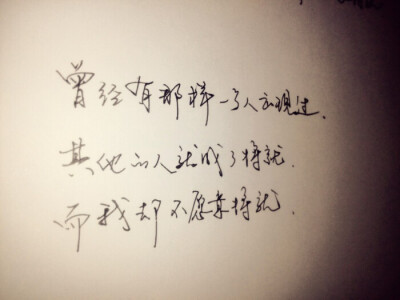 曾经有那样一个人出现过.
其他的人就成了将就.
而我却不愿意将就.